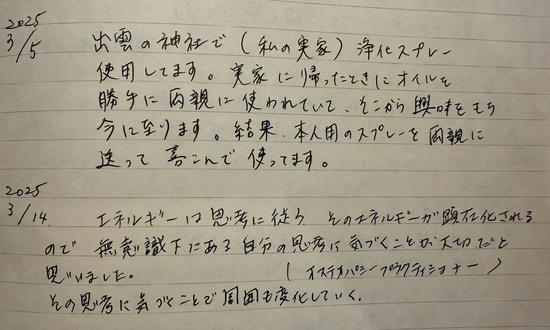 2025
3/5 出雲の神社で(私の実家)浄化スプレー
使用してます。実家に帰ったときにオイルを
勝手に両親に使われていて、そこから興味をもち
今に至ります。結果、本人用のスプレーを両親に
送って喜こんで使ってます。
2025
3/14. エネルギーは思考に従う そのエネルギーが顕在化される
ので 無意識下にある自分の思考に気づくことが大切だと
思いました。 (オステオパシープラクティショナー)
その思考に気づくことで周囲も変化していく.